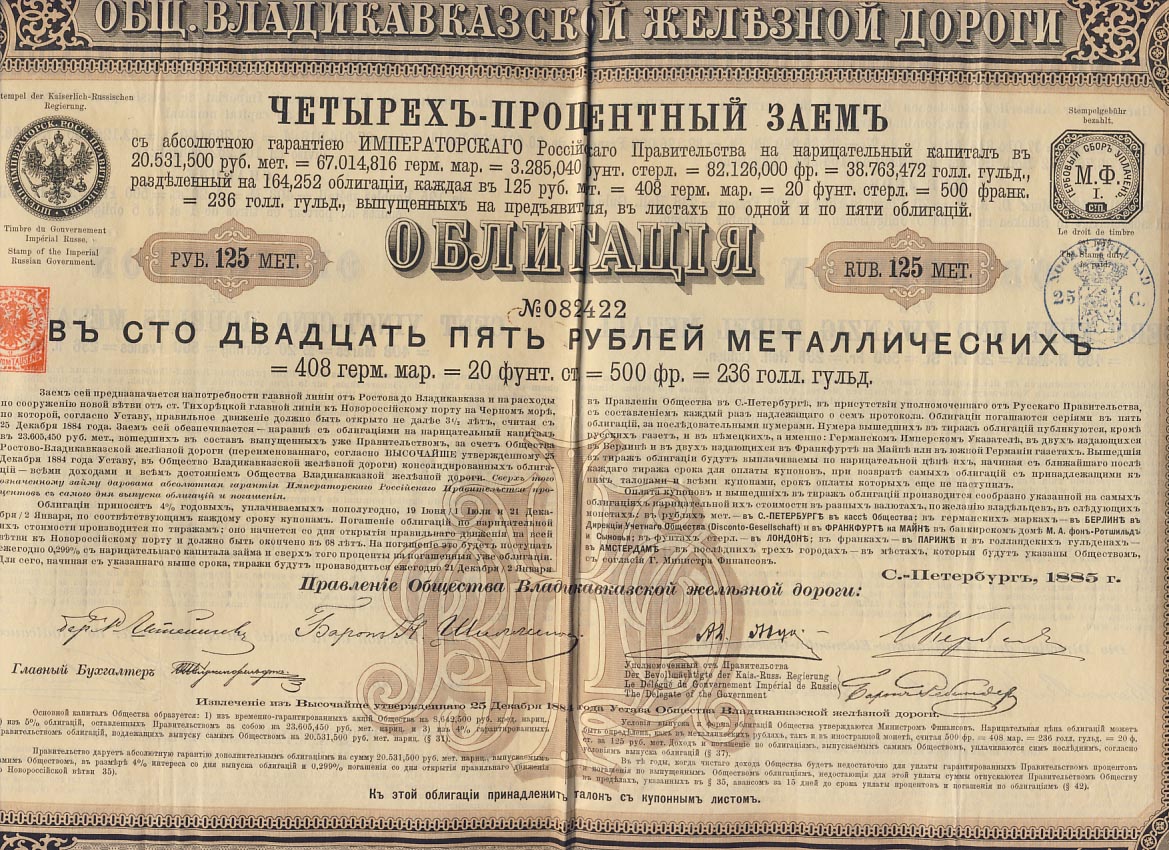 ОБЩ. ВЛАДИКАВКАЗСКОЙ ЖЕЛѢЗНОЙ ДОРОГИ
tempel der Kaiserlich-Russischen
Regierung.
Stempelgebühr
bezahlt.
ЧЕТЫРЕХЪ-ПРОЦЕНТНЫЙ ЗАЕМЪ
съ абсолютною гарантіею ИМПЕРАТОРСКАГО Россійскаго Правительства на нарицательный капиталъ въ
20.531,500 руб. мет. = 67.014,816 герм. мар. = 3.285,040 фунт. стерл. = 82.126,000 фр. = 38.763,472 голл. гульд.,
раздѣленный на 164,252 облигаціи, каждая въ 125 руб. мет. = 408 герм. мар. = 20 фунт. стерл. = 500 франк.
= 236 голл. гульд., выпущенныхъ на предъявителя, въ листахъ по одной и по пяти облигацій.
ГЕРБОВЫЙ СБОРЪ УПЛАЧЕНЪ
М.Ф.
I.
Timbre du Gouvernement
Impérial Russe.
Stamp of the Imperial
Russian Government.
Le droit de timbre
The Stamp duty
РУБ. 125 МЕТ.
ОБЛИГАЦІЯ
RUB. 125 МЕТ.
25 C.
№ 082422
ВЪ СТО ДВАДЦАТЬ ПЯТЬ РУБЛЕЙ МЕТАЛЛИЧЕСКИХЪ
= 408 герм. мар. = 20 фунт. ст. = 500 фр. = 236 голл. гульд.
Заемъ сей предназначается на потребности главной линіи отъ Ростова до Владикавказа и на расходы
по сооруженію новой вѣтви отъ ст. Тихорѣцкой главной линіи къ Новороссійскому порту на Черномъ морѣ,
по которой, согласно Уставу, правильное движеніе должно быть открыто не далѣе 3½ лѣтъ, считая съ
25 Декабря 1884 года. Заемъ сей обезпечивается — наравнѣ съ облигаціями на нарицательный капиталъ
въ 23.605,450 руб. мет., вошедшихъ въ составъ выпущенныхъ уже Правительствомъ, за счетъ Общества
Ростово-Владикавказской желѣзной дороги (переименованнаго, согласно ВЫСОЧАЙШЕ утвержденному 25
Декабря 1884 года Уставу, въ Общество Владикавказской желѣзной дороги) консолидированныхъ облига-
цій — всѣми доходами и всѣмъ достояніемъ Общества Владикавказской желѣзной дороги. Сверхъ того
означенному займу дарована абсолютная гарантія Императорскаго Россійскаго Правительства про-
центовъ съ самаго дня выпуска облигацій и погашенія.
Облигаціи приносятъ 4% годовыхъ, уплачиваемыхъ пополугодно, 19 Іюня / 1 Іюля и 21 Дека-
бря / 2 Января, по соотвѣтствующимъ каждому сроку купонамъ. Погашеніе облигацій по нарицательной
ихъ стоимости производится по тиражамъ; оно начнется со дня открытія правильнаго движенія по всей
вѣтви къ Новороссійскому порту и должно быть окончено въ 81 лѣтъ. На погашеніе это будетъ поступать
ежегодно 0,299% съ нарицательнаго капитала займа и сверхъ того проценты на погашенныя уже облигаціи.
Для сего, начиная съ указаннаго выше срока, тиражи будутъ производиться ежегодно 21 Декабря / 2 Января
въ Правленіи Общества въ С.-Петербургѣ, въ присутствіи уполномоченнаго отъ Русскаго Правительства,
съ составленіемъ каждый разъ надлежащаго о семъ протокола. Облигаціи погашаются серіями въ пять
облигацій, за послѣдовательными нумерами. Нумера вышедшихъ въ тиражъ облигацій публикуются, кромѣ
русскихъ газетъ, и въ нѣмецкихъ, а именно: Германскомъ Имперскомъ Указателѣ, въ двухъ издающихся
въ Берлинѣ и въ двухъ издающихся въ Франкфуртѣ на Майнѣ или въ южной Германіи газетахъ. Вышедшія
въ тиражъ облигаціи будутъ выплачиваемы по нарицательной цѣнѣ ихъ, начиная съ ближайшаго послѣ
каждаго тиража срока для оплаты купоновъ, при возвратѣ самыхъ облигацій съ принадлежащими къ
нимъ талонами и всѣми купонами, срокъ оплаты которыхъ еще не наступилъ.
Оплата купоновъ и вышедшихъ въ тиражъ облигацій производится сообразно указанной на самыхъ
облигаціяхъ нарицательной ихъ стоимости въ разныхъ валютахъ, по желанію владѣльцевъ, въ слѣдующихъ
монетахъ: въ рубляхъ мет. — въ С.-ПЕТЕРБУРГѢ въ кассѣ Общества; въ германскихъ маркахъ — въ БЕРЛИНѢ въ
Дирекціи Учетнаго Общества (Disconto-Gesellschaft) и въ ФРАНКФУРТѢ НА МАЙНѢ въ банкирскомъ домѣ М. А. фонъ-Ротшильдъ
и Сыновья; въ фунтахъ стерл. — въ ЛОНДОНѢ; въ франкахъ — въ ПАРИЖѢ и въ голландскихъ гульденахъ —
въ АМСТЕРДАМѢ — въ послѣднихъ трехъ городахъ — въ мѣстахъ, которыя будутъ указаны Обществомъ,
съ согласія Г. Министра Финансовъ.
С.-Петербургъ, 1885 г.
Правленіе Общества Владикавказской желѣзной дороги:
Главный Бухгалтеръ
Уполномоченный отъ Правительства
Der Bevollmächtigte der Kais.-Russ. Regierung
Le Délégué du Gouvernement Impérial de Russie
The Delegate of the Government
Извлеченіе изъ Высочайше утвержденнаго 25 Декабря 1884 года Устава Общества Владикавказской желѣзной дороги.
Основной капиталъ Общества образуется: 1) изъ временно-гарантированныхъ акцій Общества на 8,642,500 руб. кред. нариц.,
) изъ 5% облигацій, оставленныхъ Правительствомъ за собою на 23.605,450 руб. мет. нариц. и 3) изъ 4% гарантированныхъ
равительствомъ облигацій, подлежащихъ выпуску самимъ Обществомъ на 20.531,500 руб. мет. нариц. (§ 31).
Правительство даруетъ абсолютную гарантію дополнительнымъ облигаціямъ на сумму 20.531,500 руб. мет. нариц., выпускаемымъ
амимъ Обществомъ, въ размѣрѣ 4% интереса со дня выпуска облигацій и 0,299% погашенія со дня открытія правильнаго движенія
о Новороссійской вѣтви 35).
Условія выпуска и форма облигацій Общества утверждаются Министромъ Финансовъ. Нарицательная цѣна облигацій можетъ
быть опредѣлена, какъ въ металлическихъ рубляхъ, такъ и въ иностранной монетѣ, считая 500 фр. = 408 мар. = 236 голл. гульд. = 20 ф.
ст. за 125 руб. мет. Доходъ и погашеніе по облигаціямъ, выпускаемымъ самимъ Обществомъ, уплачиваются симъ послѣднимъ, согласно
условіямъ выпуска облигацій (§ 37).
Въ тѣ годы, когда чистаго дохода Общества будетъ недостаточно для уплаты гарантированныхъ Правительствомъ процентовъ
и погашенія по выпущеннымъ Обществомъ облигаціямъ, недостающія для этой уплаты суммы отпускаются Правительствомъ Обществу
въ предѣлахъ, указанныхъ въ § 35, авансомъ за 15 дней до срока уплаты процентовъ и погашенія по облигаціямъ (§ 42).
Къ этой облигаціи принадлежитъ талонъ съ купоннымъ листомъ.